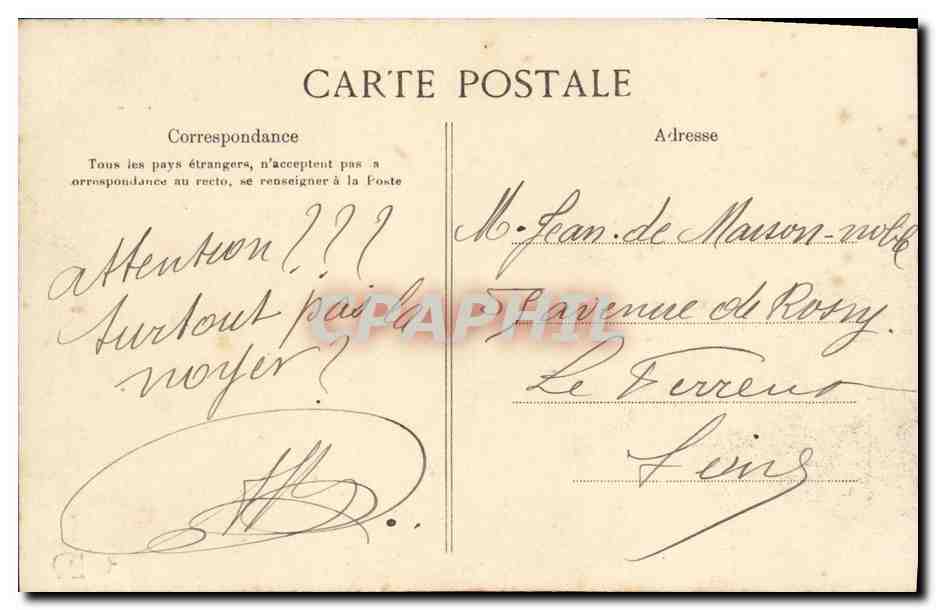 CARTE POSTALE
Correspondance
Tous les pays étrangers, n'acceptent pas a
orrespondance au recto, se renseigner à la Poste
attention ? ? ?
surtout pas la
noyer ?
Adresse
M. Jean de Maison-noble
avenue de Rosny.
Le Perreux
Seine
CPAPHIL